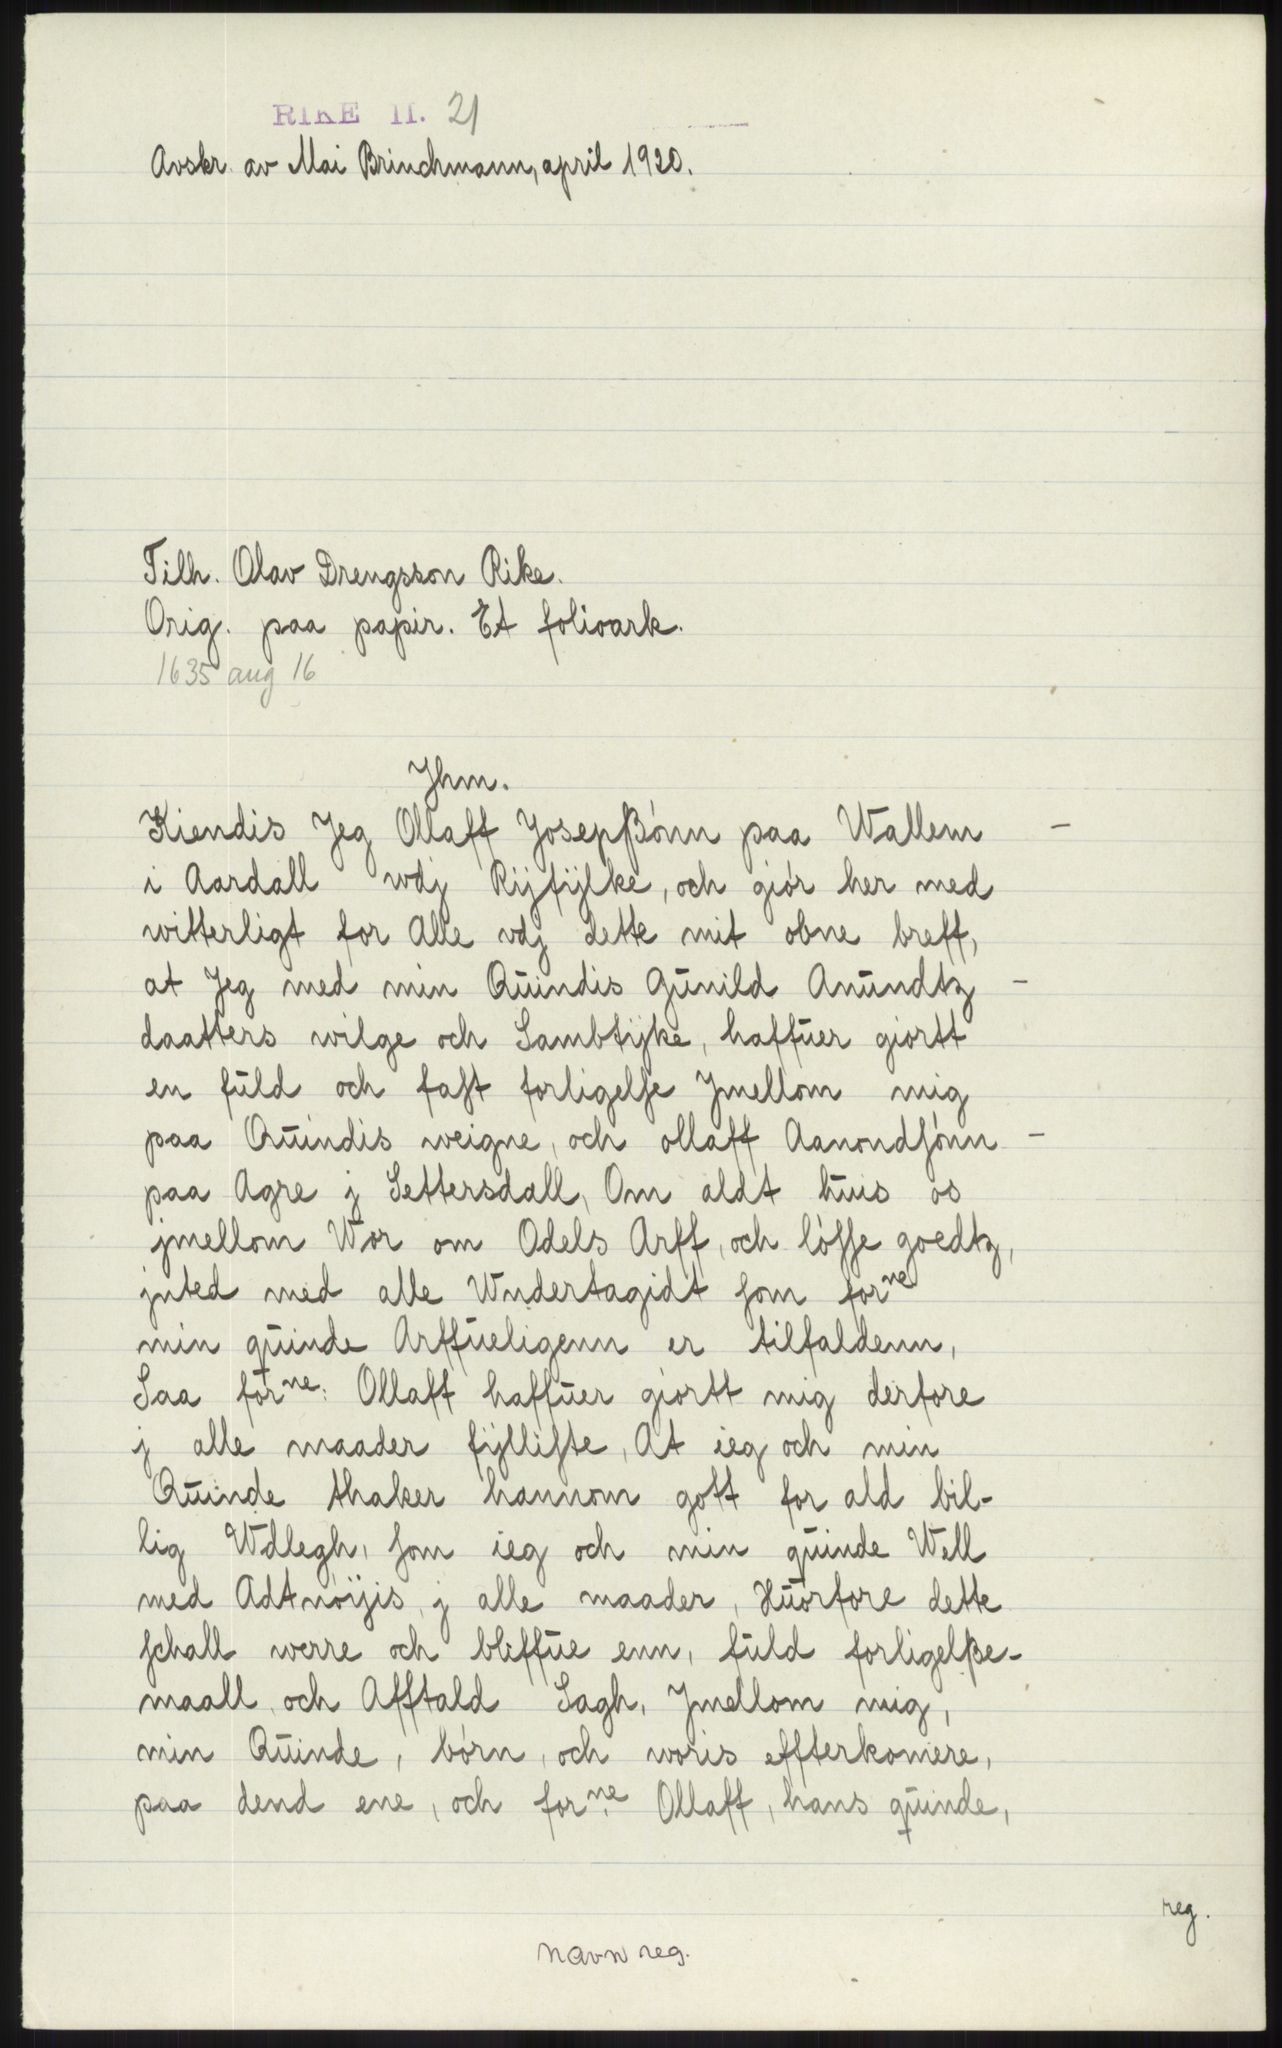 RIKE II. 21
Avskr. av Mai Brinchmann, april 1920.
Tilh. Olav Drengsson Rike.
Orig. paa papir. Et folioark.
1635 aug 16
Jhm.
Kiendis Jeg Ollaff Josepßónn paa Wallem –
i Aardall wdj Rijfijlke, och giór her med
witterligt for Alle vdj dette mit obne breff,
at Jeg med min Qūindis Gūnild Anūndtz –
daatters wilge och Sambtijke, haffūer giortt
en fūld och faſt forligelſe Jmellom mig
paa Qūindis weigne, och ollaff Aanondſónn –
paa Agre j Settersdall, Om aldt hūis os
jmellom Wor om Odels Arff, och lóſſe goedtz,
jnted med alle Wndertagidt ſom forne
min qūinde Arffūeligenn er tilfaldenn,
Saa forne: Ollaff haffūer giortt mig derfore
j alle maader fijlliſte, At ieg och min
Qūinde thaker hannom gott for ald bil-
lig Wdlegh, ſom ieg och min qūinde Well
med Adtnóijis, j alle maader, Hūorfore dette
ſchall werre och bliffūe enn, fūld forligelße-
maall, och Afftald Sagh, Jmellom mig,
min Qūinde, bórn, och woris effterkomere,
paa dend ene, och forne Ollaff, hans qūinde,
reg.
navn reg.